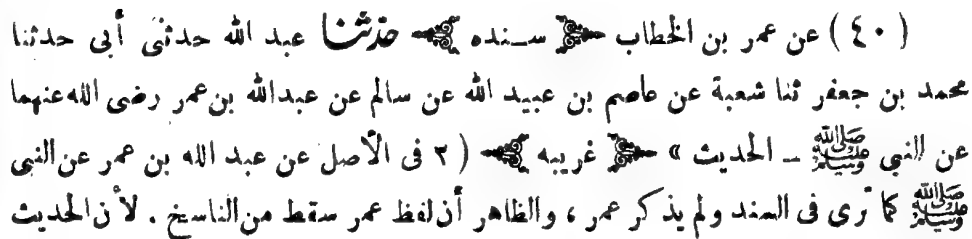 (٤٠) عن عمر بن الخطاب ﴿ سـنده ﴾ حدّثنا عبد الله حدثنى أبى حدثنا
محمد بن جعفر ثنا شعبة عن عاصم بن عبيد الله عن سالم عن عبدالله بن عمر رضى الله عنهما
عن النبى ﷺ ــ الحديث » ﴿ غريبه ﴾ (٢ فى الأصل عن عبد الله بن عمر عن النبى
ﷺ كما ترى فى السند ولم يذكر عمر ، والظاهر أن لفظ عمر سقط من الناسخ . لأن الحديث